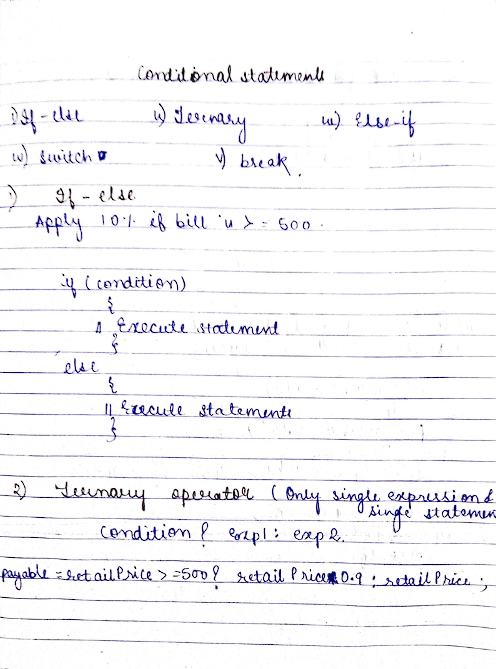 Conditional statements
i) If - else ii) Ternary iii) Else-if
iv) switch v) break.
1) If - else
Apply 10% if bill is >= 500.
if (condition)
{
// Execute statement
}
else
{
// Execute statements
}
2) Ternary operator (Only single expression &
single statemen
condition ? exp1 : exp2.
payable = retailPrice >= 500 ? retailPrice * 0.9 : retailPrice ;